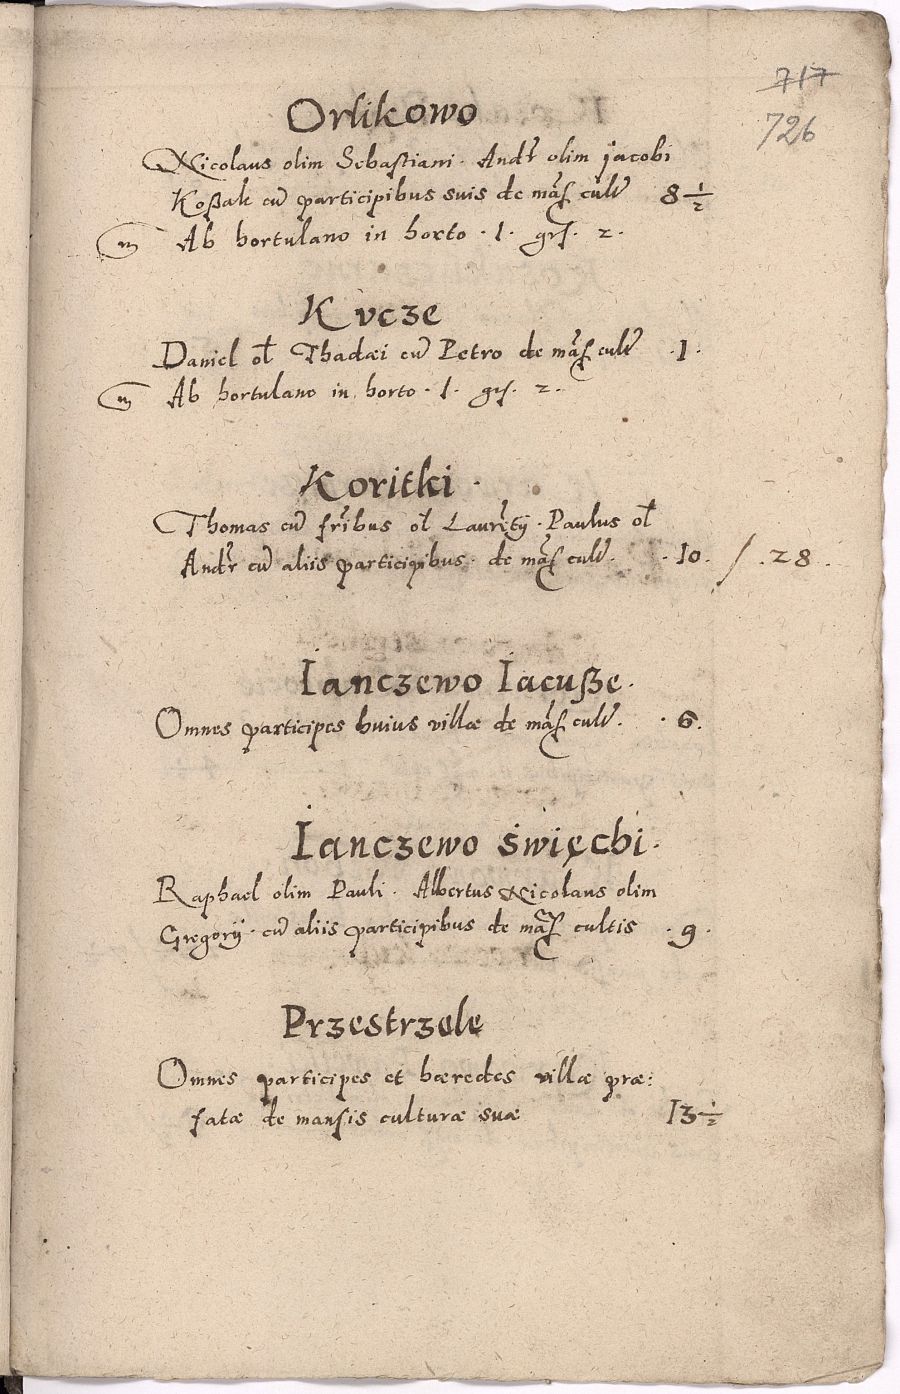 717
726
Orlikowo
Nicolaus olim Sebastiani · Andr olim jacobi
Koßak cu participibus suis de mas cult 8 1/2
m Ab hortulano in horto · 1 · grs · 2 ·
Kvcze
Daniel ol Thadæi cu Petro de mas cult · 1 ·
m Ab hortulano in horto · 1 · grs · 2 ·
Koritki ·
Thomas cu fribus ol Laurety · Paulus ol
Andr cu aliis participibus · de mas cult · · 10 · / · 28 ·
Ianczewo Iacusze ·
Omnes participes huius villæ de mas cult · · 6 ·
Ianczewo święchi ·
Raphael olim Pauli · Albertus Nicolaus olim
Gregorÿ · cu aliis participibus de mas cultis · 9 ·
Przestrzele
Omnes participes et hæredes villæ præ:
fatæ de mansis culturæ suæ 13 1/2